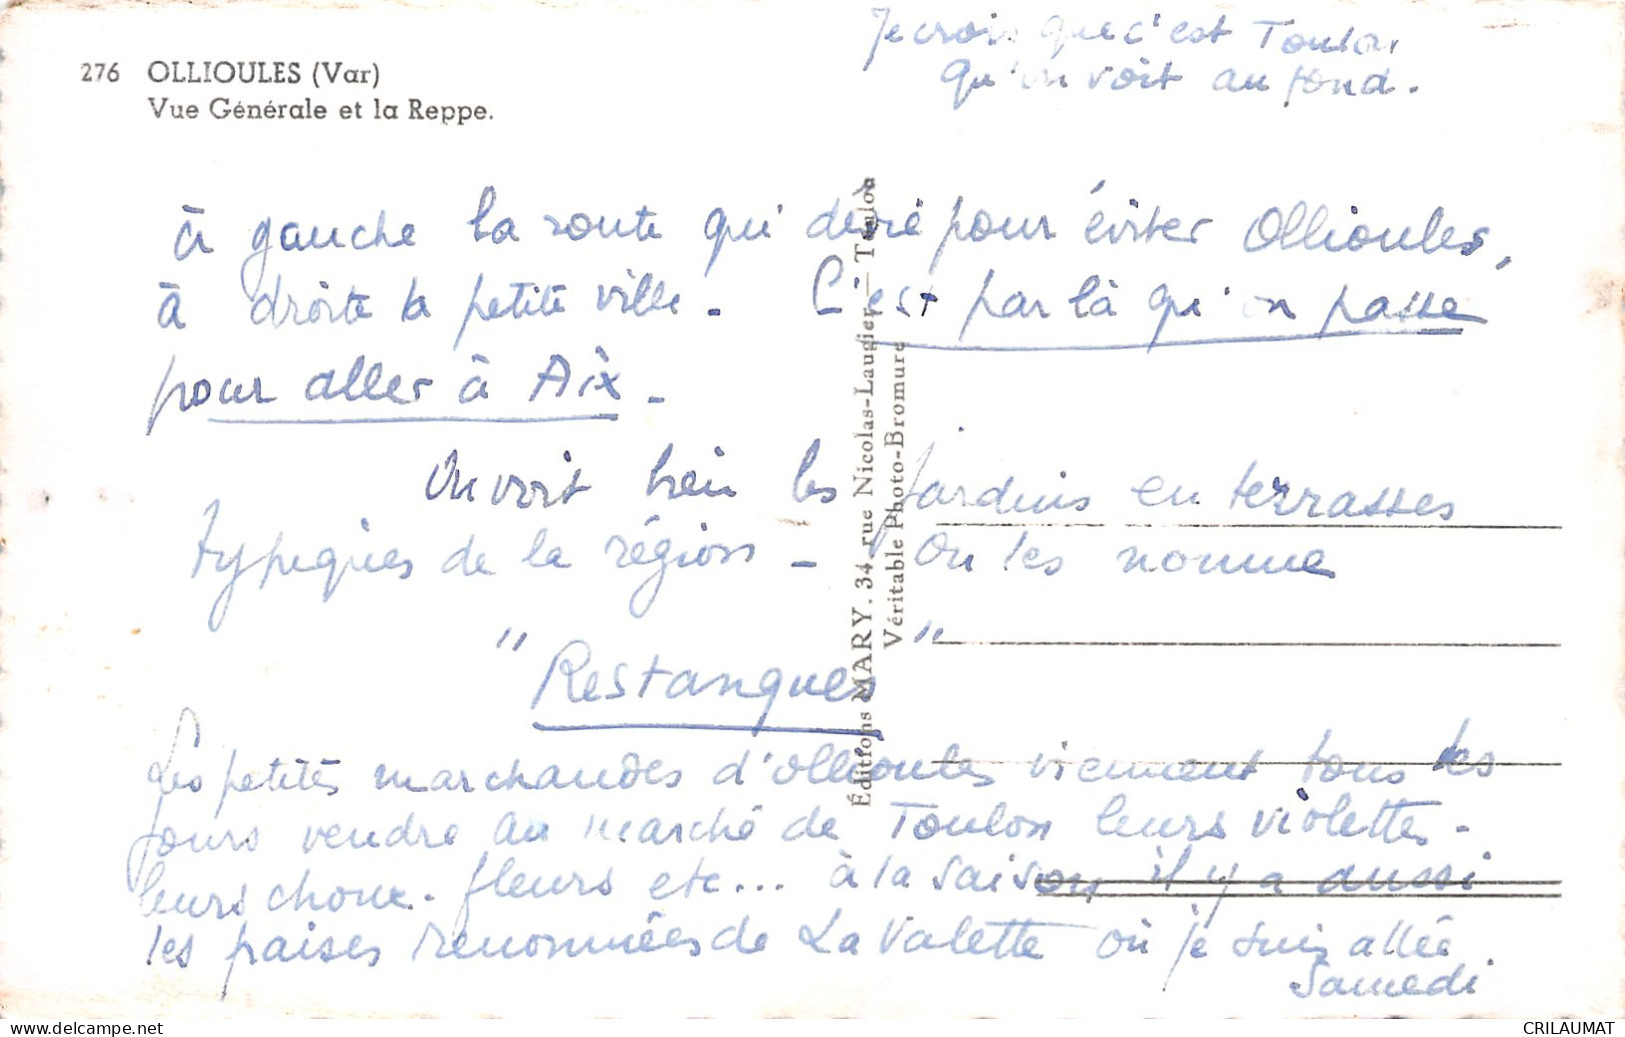 Je crois que c'est Toulon
qu'on voit au fond.
276 OLLIOULES (Var)
Vue Générale et la Reppe.
à gauche la route qui dévie pour éviter Ollioules,
à droite la petite ville. C'est par là qu'on passe
pour aller à Aix -
On voit bien les jardins en terrasses
typiques de la région - On les nomme
"Restanques"
Les petites marchandes d'Ollioules viennent tous les
jours vendre au marché de Toulon leurs violettes -
leurs choux - fleurs etc... à la saison il y a aussi
les fraises renommées de La Valette où je suis allée
Samedi.
Éditions MARY. 34, rue Nicolas-Laugier — Toulon
Véritable Photo-Bromure
delcampe.net
CRILAUMAT